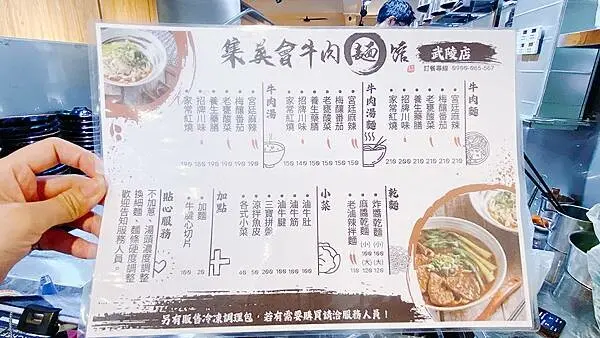 集英會牛肉麵館
武陵店
訂餐專線 0900-065-667
牛肉麵
宮廷麻辣
梅釀番茄
老甕酸菜
養生藥膳
招牌川味
家常紅燒
牛肉湯麵
宮廷麻辣 150
梅釀番茄 150
老甕酸菜 150
養生藥膳 150
招牌川味
家常紅燒
牛肉湯
宮廷麻辣 190
梅釀番茄 190
老甕酸菜 190
養生藥膳 190
招牌川味
家常紅燒
乾麵
炸醬乾麵 (小) (大) 120
麻醬乾麵 (小) (大) 120
老滷辣拌麵 110
小菜
滷牛肚
滷牛筋
滷牛腱
三寶拼盤
涼拌魚皮 50
各式小菜 40
加點
加麵 20
牛腱心切片 100
貼心服務
不加蔥、湯頭濃度調整
換細麵、麵條硬度調整
歡迎告知服務人員。
另有販售冷凍調理包，若有需要購買請洽服務人員！